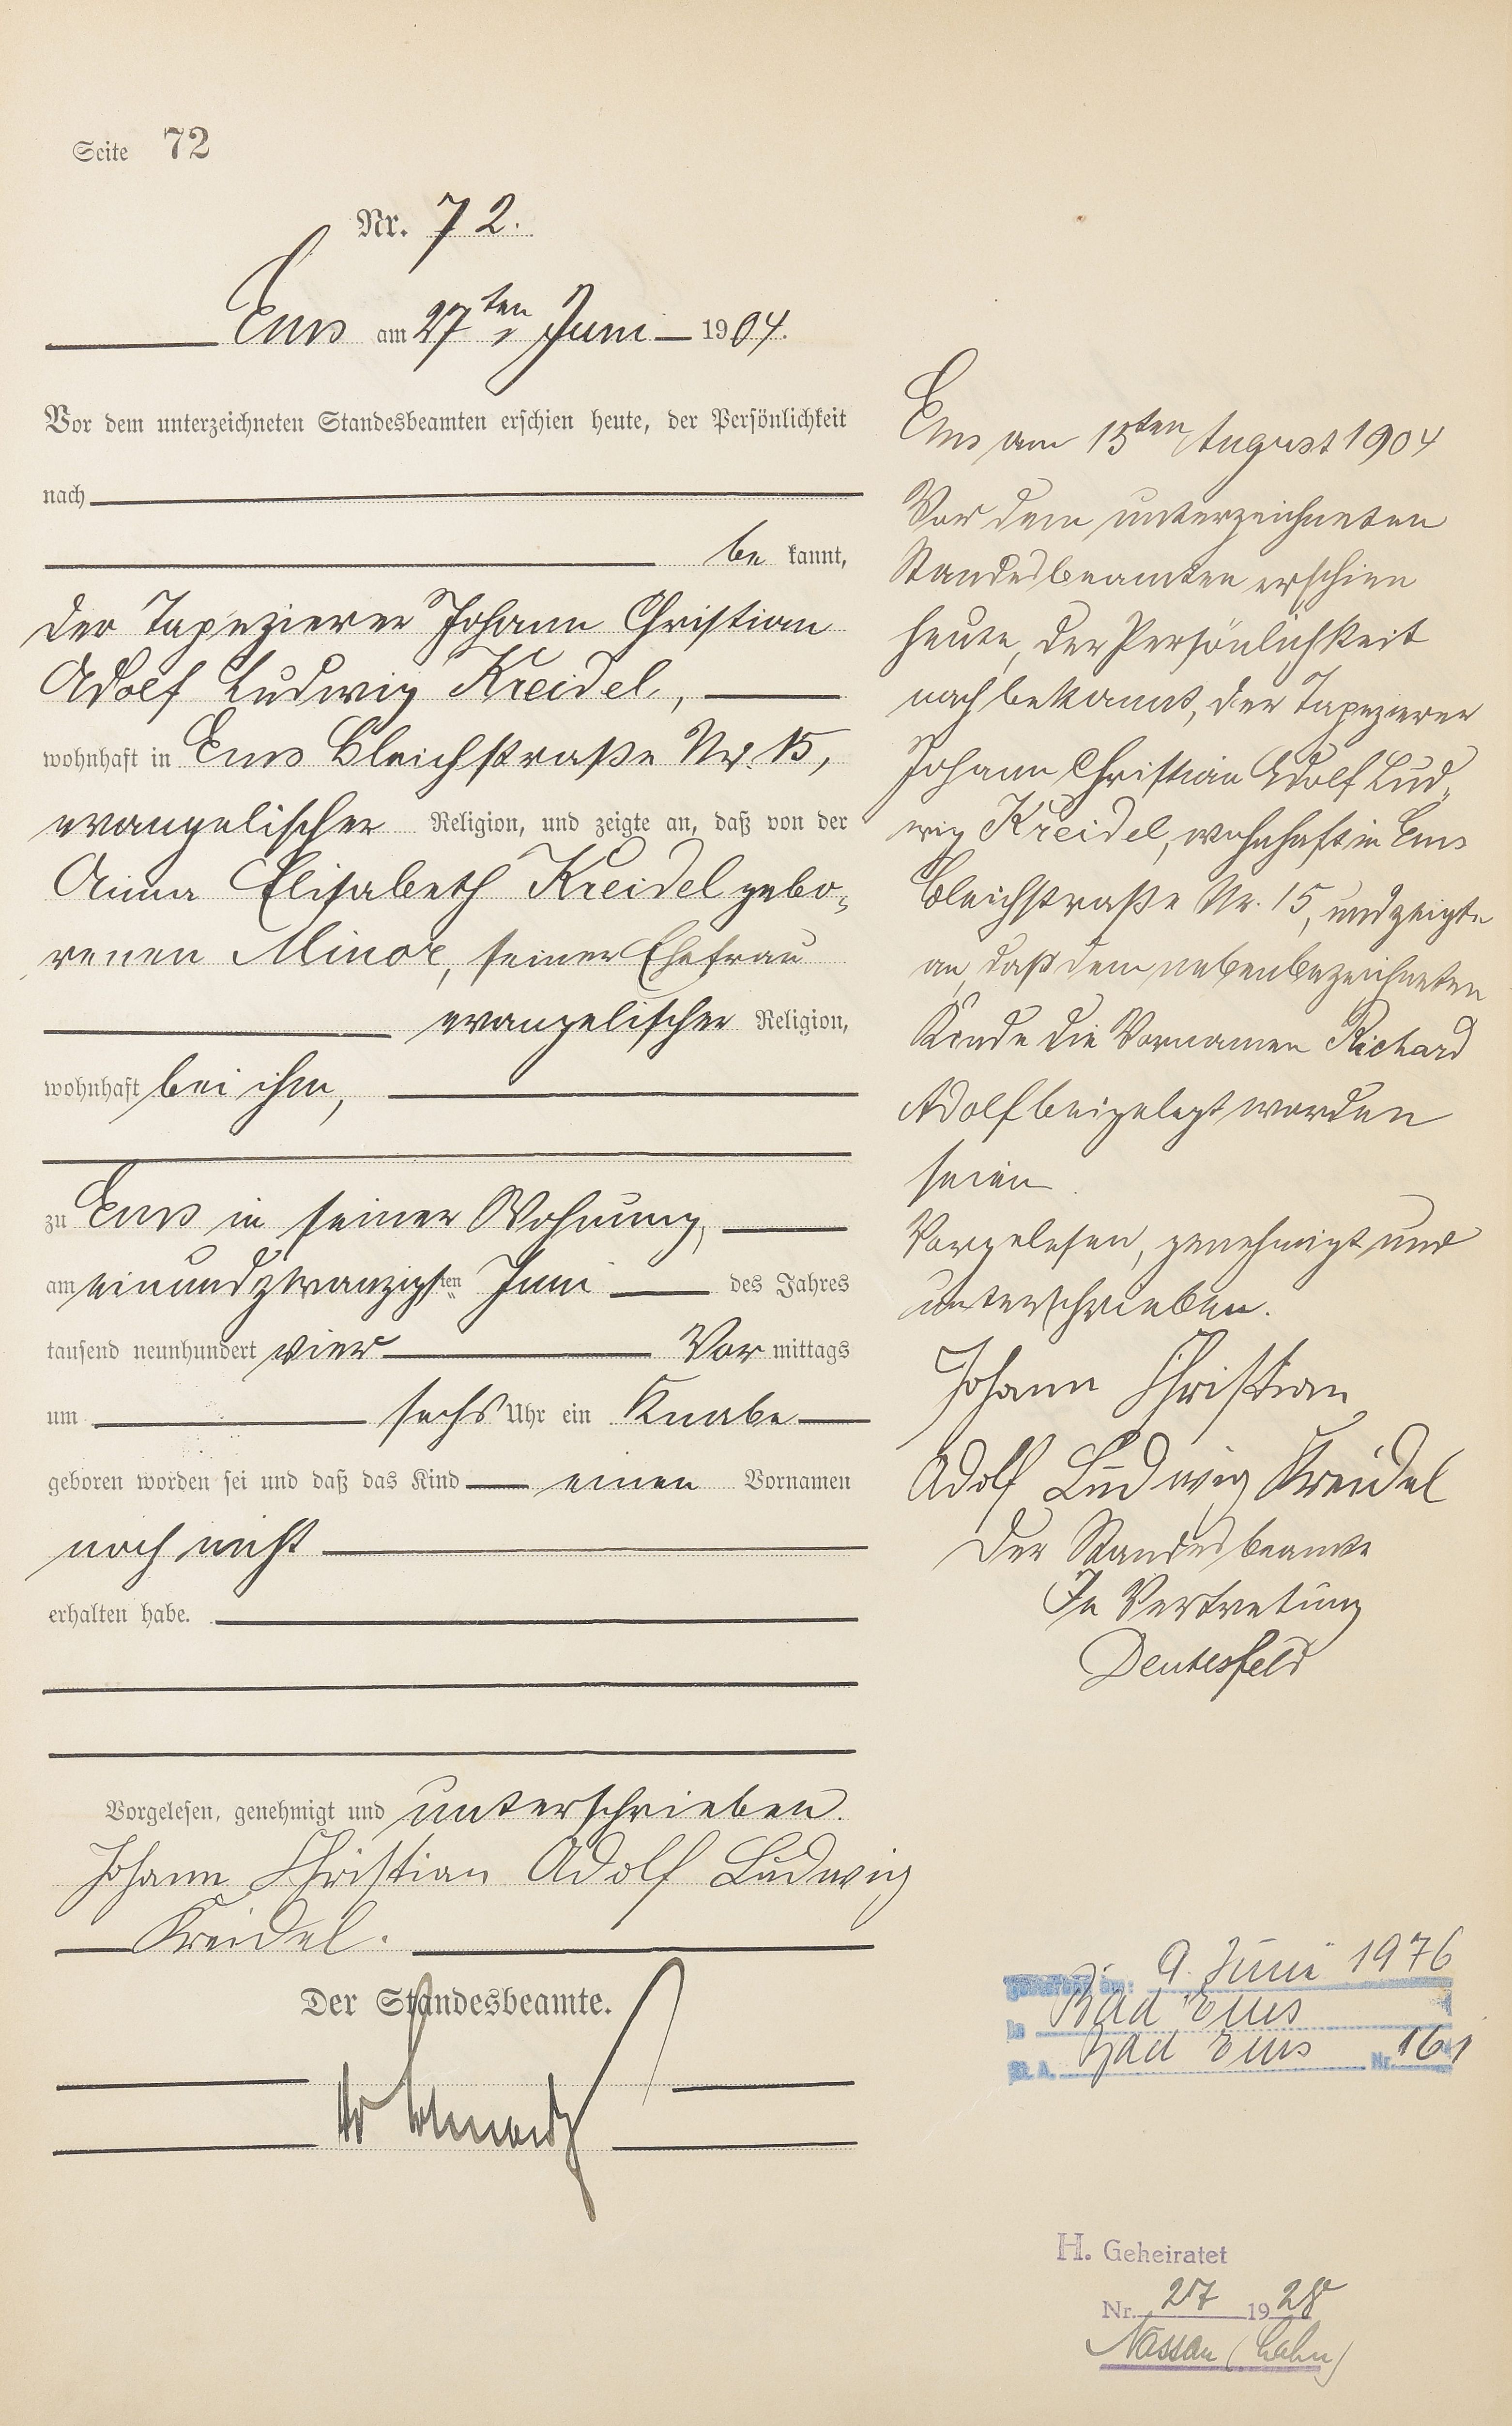 Seite 72
Nr. 72.
Ems am 27ten Juni 1904.
Vor dem unterzeichneten Standesbeamten erschien heute, der Persönlichkeit
nach
be kannt,
der Tapezierer Johann Christian
Adolf Ludwig Kreidel,
wohnhaft in Ems Bleichstraße Nr. 15,
evangelischer Religion, und zeigte an, daß von der
Anna Elisabeth Kreidel gebo-
renen Minor, seiner Ehefrau
evangelischer Religion,
wohnhaft bei ihm,
zu Ems in seiner Wohnung,
am einundzwanzigsten Juni des Jahres
tausend neunhundert vier Vor mittags
um sechs Uhr ein Knabe
geboren worden sei und daß das Kind einen Vornamen
noch nicht
erhalten habe.
Vorgelesen, genehmigt und unterschrieben.
Johann Christian Adolf Ludwig
Kreidel.
Der Standesbeamte.
Ems am 15ten August 1904
Vor dem unterzeichneten
Standesbeamten erschien
heute, der Persönlichkeit
nach bekannt, der Tapezierer
Johann Christian Adolf Lud-
wig Kreidel, wohnhaft in Ems
Bleichstraße Nr. 15, und zeigte
an, daß dem nebenbezeichneten
Kinde die Vornamen Richard
Adolf beigelegt worden
seien.
Vorgelesen, genehmigt und
unterschrieben.
Johann Christian
Adolf Ludwig Kreidel
Der Standesbeamte
In Vertretung
Deutesfeld
Gestorben am: 9. Juni 1976
in Bad Ems
St. A. Bad Ems Nr. 161
H. Geheiratet
Nr. 27 1928
Nassau (Lahn)